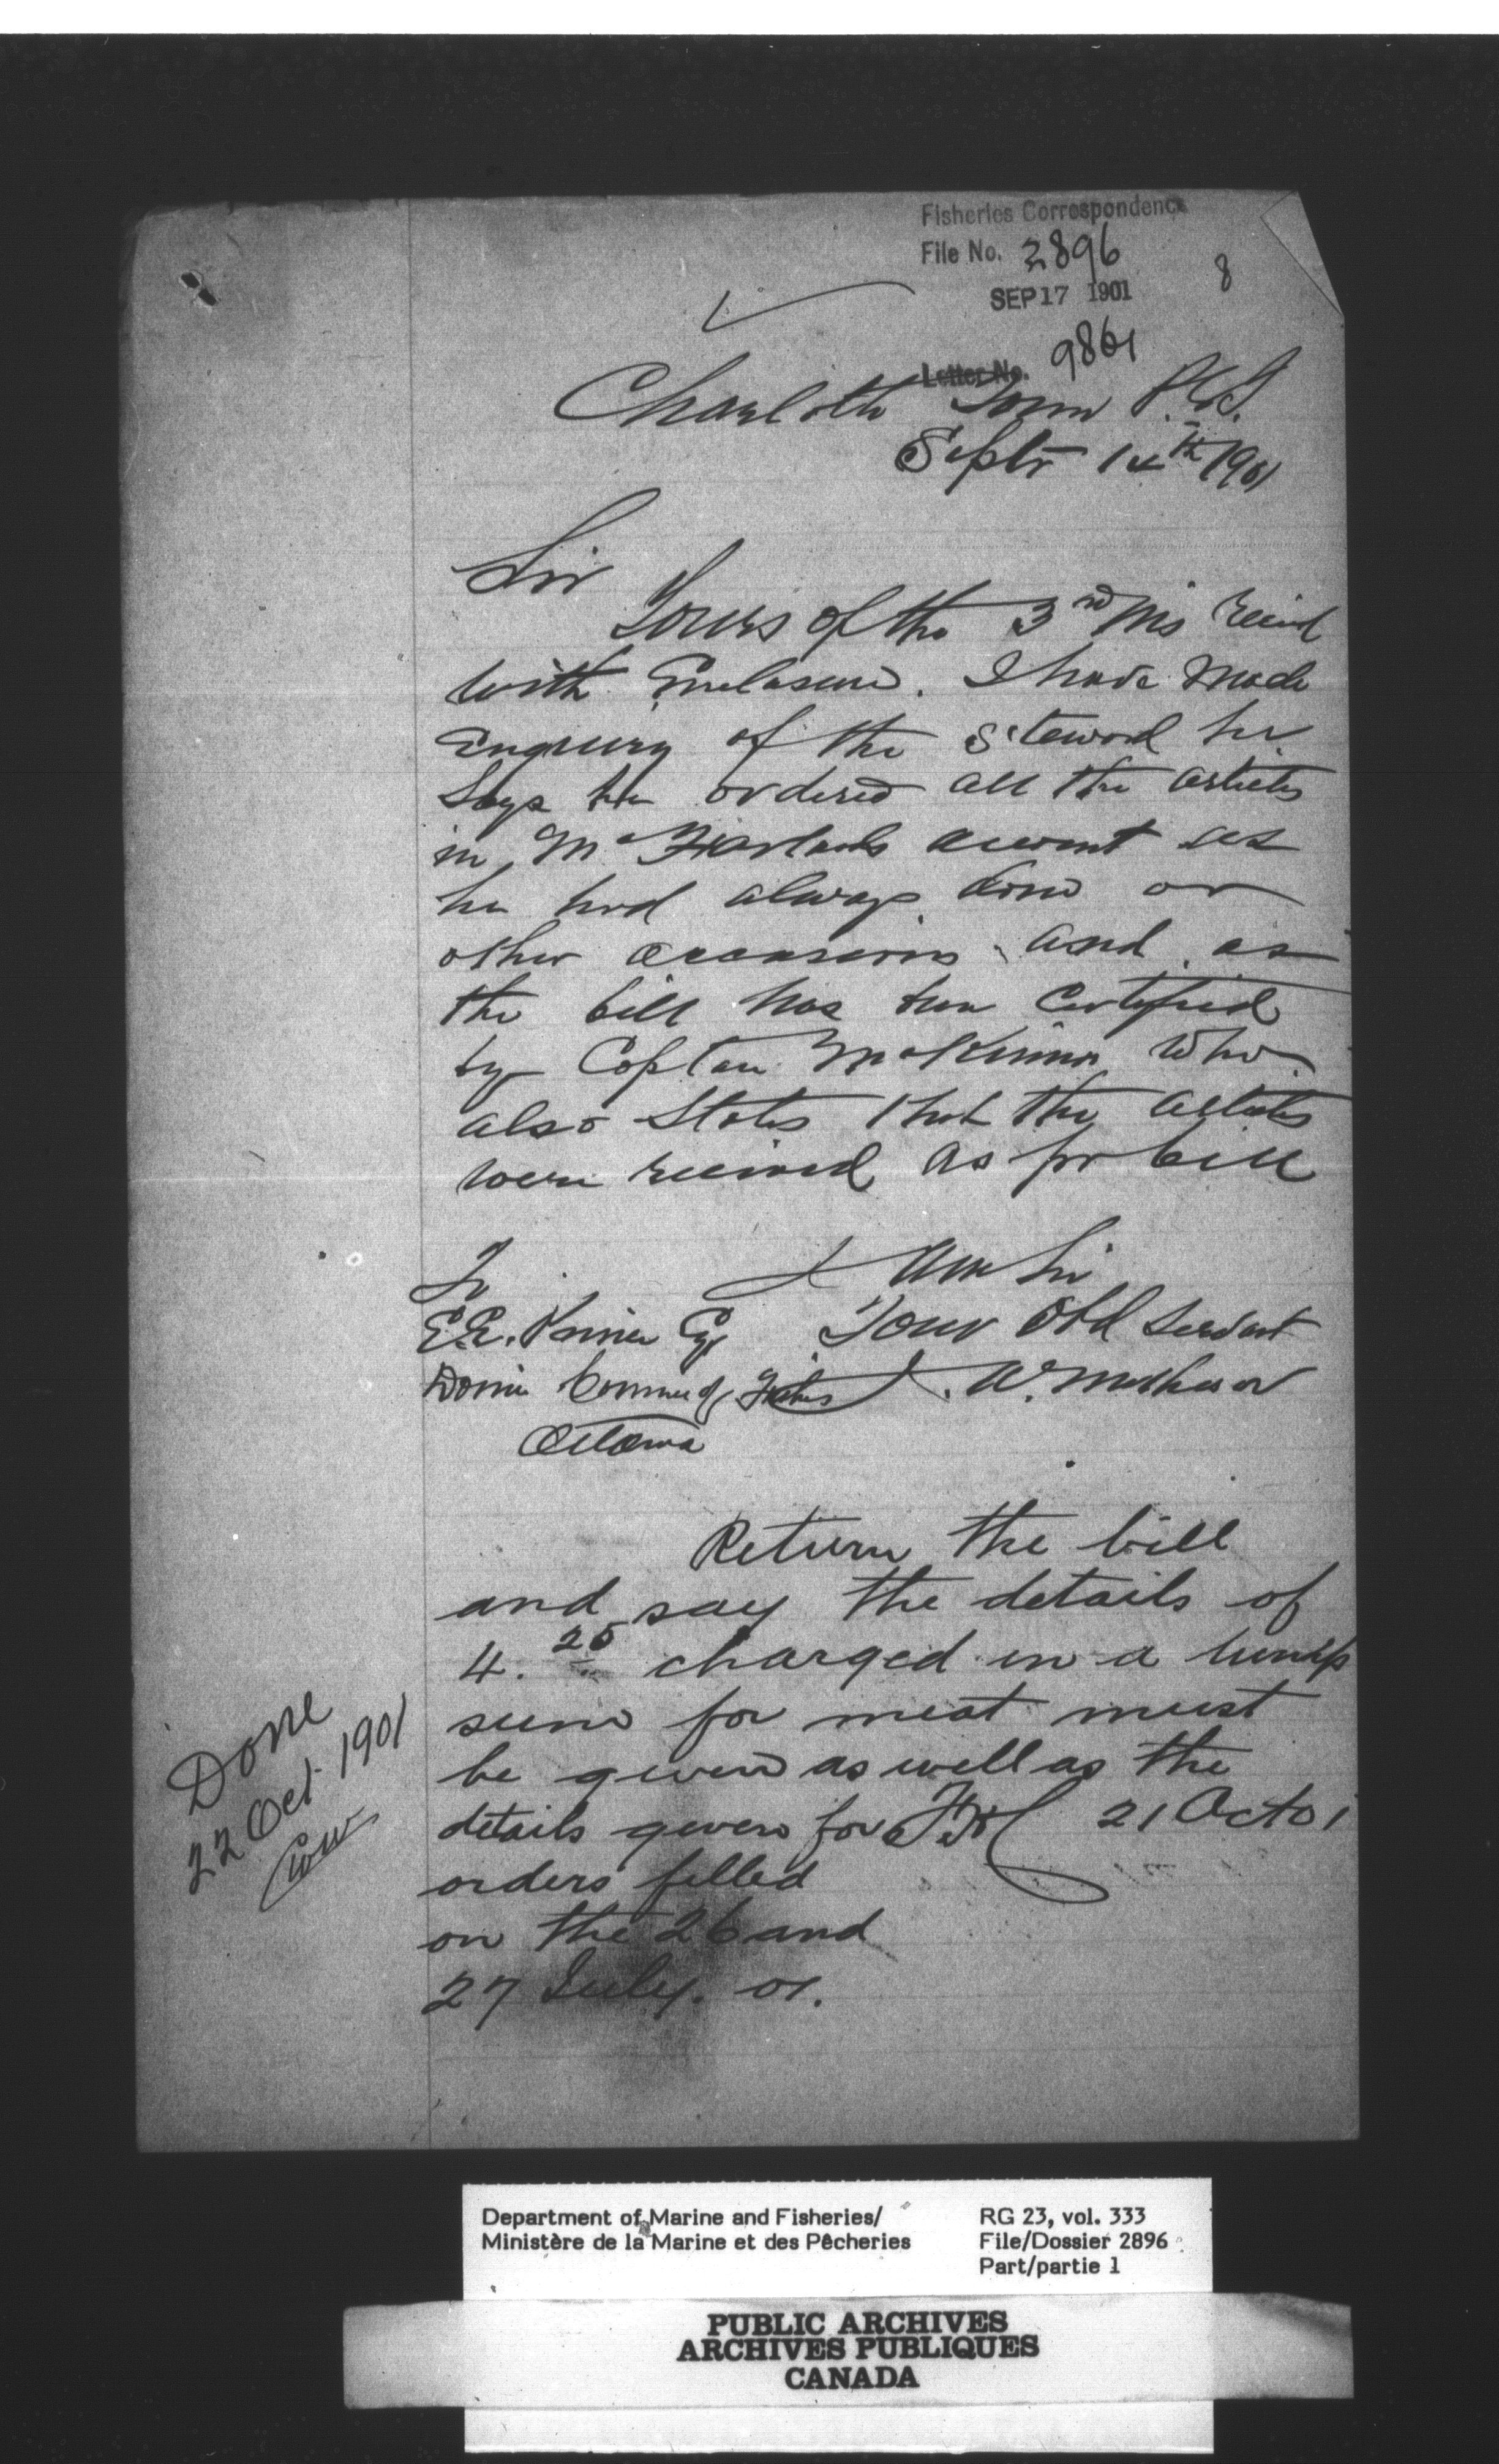 Fisheries Correspondence
File No. 2896
SEP 17 1901
8
Letter No. 9861
Charlotte Town P.E.I.
Septr 14th 1901
Sir
Yours of the 3rd Ins
with Enclosure. I have made
Enquiry of the Steward he
Says he ordered all the articles
in account as
he had always done on
other occasions and as
the bill has been Certified
by Captan McKinnon who
also States that the articles
were received as pr bill
I am Sir
To
E.E. Prince Esq
Your Obd Servant
Domin Commr of Fishs
Ottawa
Return the bill
and say the details of
4.25 charged in a lump
sum for meat must
be given as well as the
details given for
21 Oct 01
orders filled
on the 26 and
27 July. 01.
Done
22 Oct. 1901
Department of Marine and Fisheries/
Ministère de la Marine et des Pêcheries
RG 23, vol. 333
File/Dossier 2896
Part/partie 1
PUBLIC ARCHIVES
ARCHIVES PUBLIQUES
CANADA